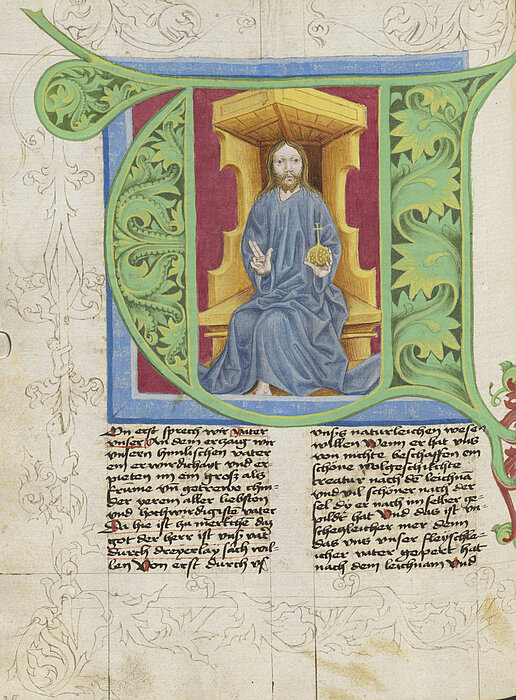 On erst sprech wir vater
unser In dem erzaig wir
unsern himlischen vater
ein erwirdichayt und er
pieten im ein groß als
frume un getrewe chin
der yerem aller liebsten
und hochwirdigiste vater
Er hie ist ze merkche daz
got der herr ist uns vat
durch dreyerlay sach wil
len Von erst durch uʃ
unsers naturleichen wesen
willen Wenn er hat uns
von nichte beschaffen ein
schone wolgeschikchte
creatur nach dē leichnā
und vil schoner nach der
sel dy er nach im selber ge
pildt hat Und das ist un
schegleicher mer denn
das uns unser fleyschle
icher vater gepert hat
nach dem leichnam Und